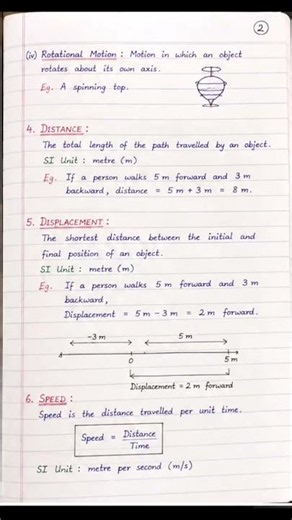 2
(iv) Rotational Motion : Motion in which an object
rotates about its own axis.
Eg. A spinning top.
4. DISTANCE :
The total length of the path travelled by an object.
SI Unit : metre (m)
Eg. If a person walks 5 m forward and 3 m
backward, distance = 5 m + 3 m = 8 m.
5. DISPLACEMENT :
The shortest distance between the initial and
final position of an object.
SI Unit : metre (m)
Eg. If a person walks 5 m forward and 3 m
backward,
Displacement = 5 m - 3 m = 2 m forward.
-3 m 5 m
0 5 m
Displacement = 2 m forward
6. SPEED :
Speed is the distance travelled per unit time.
Speed = Distance
Time
SI Unit : metre per second (m/s)